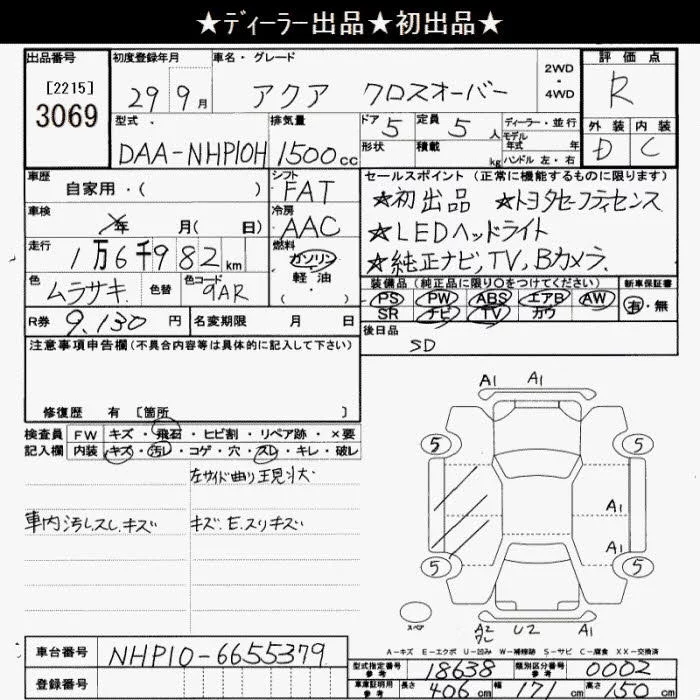 ★ディーラー出品★初出品★
出品番号
[2215]
3069
初度登録年月
29 9月
車名・グレード
アクア クロスオーバー
2WD
・
4WD
評価点
R
外装 内装
D C
型式
DAA-NHP10H
排気量
1500cc
ドア 5
形状
定員 5人
積載 kg
ディーラー・並行
モデル
年式 年
ハンドル 左・右
車歴
自家用・( )
シフト
FAT
車検
年 月( 日)
冷房
AAC
走行
1万6千982km
燃料
ガソリン
・
軽油
( )
色
ムラサキ
色替
色コード
9AR
R券 9,130円
名変期限 月 日
セールスポイント(正常に機能するものに限ります)
★初出品 ★トヨタセーフティセンス
★LEDヘッドライト
★純正ナビ,TV,Bカメラ.
装備品(純正品に限り〇をつけてください) 新車保証書
PS PW ABS エアB AW
SR ナビ TV カワ
有・無
後日品
SD
注意事項申告欄(不具合内容等は具体的に記入して下さい)
修復歴 有 [箇所 ]
検査員 FW キズ・飛石・ヒビ割・リペア跡・×要
記入欄 内装 キズ・汚レ・コゲ・穴・スレ・キレ・破レ
左サイド曲り
車内汚レスレ.キズ
キズ.E.スリキズ
A1 A1
5 5
A1
A1
5 5
スペア
A2 U2 A1
A-キズ E-エクボ U-凹み W-補修跡 S-サビ C-腐食 XX-交換済
車台番号 NHP10-6655379
登録番号
型式指定番号
参考
18638
類別区分番号
参考
0002
車庫証明用
参考
長さ 406cm 幅 171cm 高さ 150cm